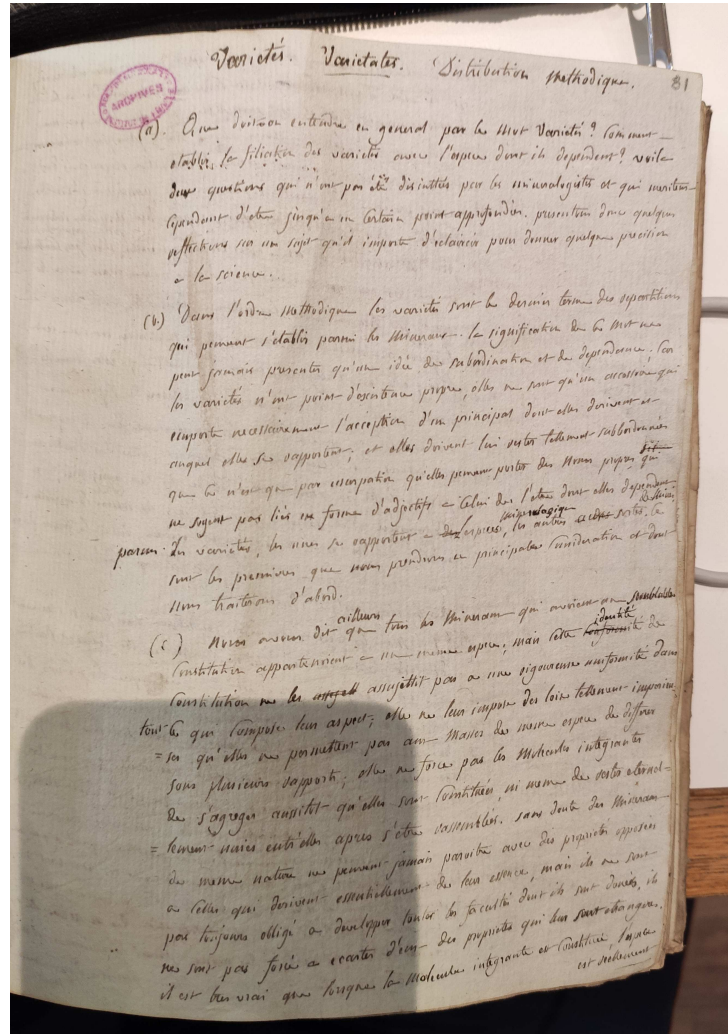 Varietés. Varietates. Distribution methodique.
81
ARCHIVES
(a). Que doit-on entendre en general par le mot Varietés? Comment
etablir la filiation des varietés avec l'espece dont ils dependent? voila
deux questions qui n'ont pas été discuttés par les mineralogistes et qui meritent
cependant d'etre jusqu'a un certain point approfondies. presentons donc quelques
reflections sur un sujet qu'il importe d'eclaircir pour donner quelque precision
a la science.
(b.) Dans l'ordre methodique les varietés sont le dernier terme des repartitions
qui peuvent s'etablir parmi les Mineraux. la signification de ce mot ne
peut jamais presenter qu'une idée de subordination et de dependance. Car
les varietés n'ont point d'existence propre, elles ne sont qu'un accessoire qui
emporte necessairement l'acception d'un principal dont elles derivent et
auquel elles se rapportent; et elles doivent lui rester tellement subbordonnées
que ce n'est que par usurpation qu'elles peuvent porter des Noms propres qui
ne soyent pas liés en forme d'adjectifs a celui de l'etre dont elles dependent.
parmi les varietés, les unes se rapportent a l'espece mineralogique, les autres aux sortes. ce
sont les premieres que nous prendrons en principale Consideration et dont
nous traiterons d'abord.
(c) Nous avons dit ailleurs que tous les Mineraux qui avoient une semblable
Constitution appartenoient a une meme espece; mais cette identité de
Constitution ne les assujettit pas a une rigoureuse uniformité dans
tout ce qui compose leur aspect; elle ne leur impose des loix tellement imperieu
= ses qu'elles ne permettent pas aux Masses de meme espece de differer
sous plusieurs rapports; elle ne force pas les Molecules integrantes
de s'agreger aussitot qu'elles sont Constituées, ni meme de rester eternel=
= lement unies entr'elles apres s'etre rassemblées. sans doute des Mineraux
de meme nature ne peuvent jamais paroitre avec des proprietés opposées
a Celles qui derivent essentiellement de leur essence, mais ils ne sont
pas toujours obligé a developper toutes les facultés dont ils sont doués, ils
ne sont pas forcé a ecarter d'eux des proprietés qui leur sont etrangeres.
il est bien vrai que lorsque la Molecule integrante est Constitué, l'espece
est reellement